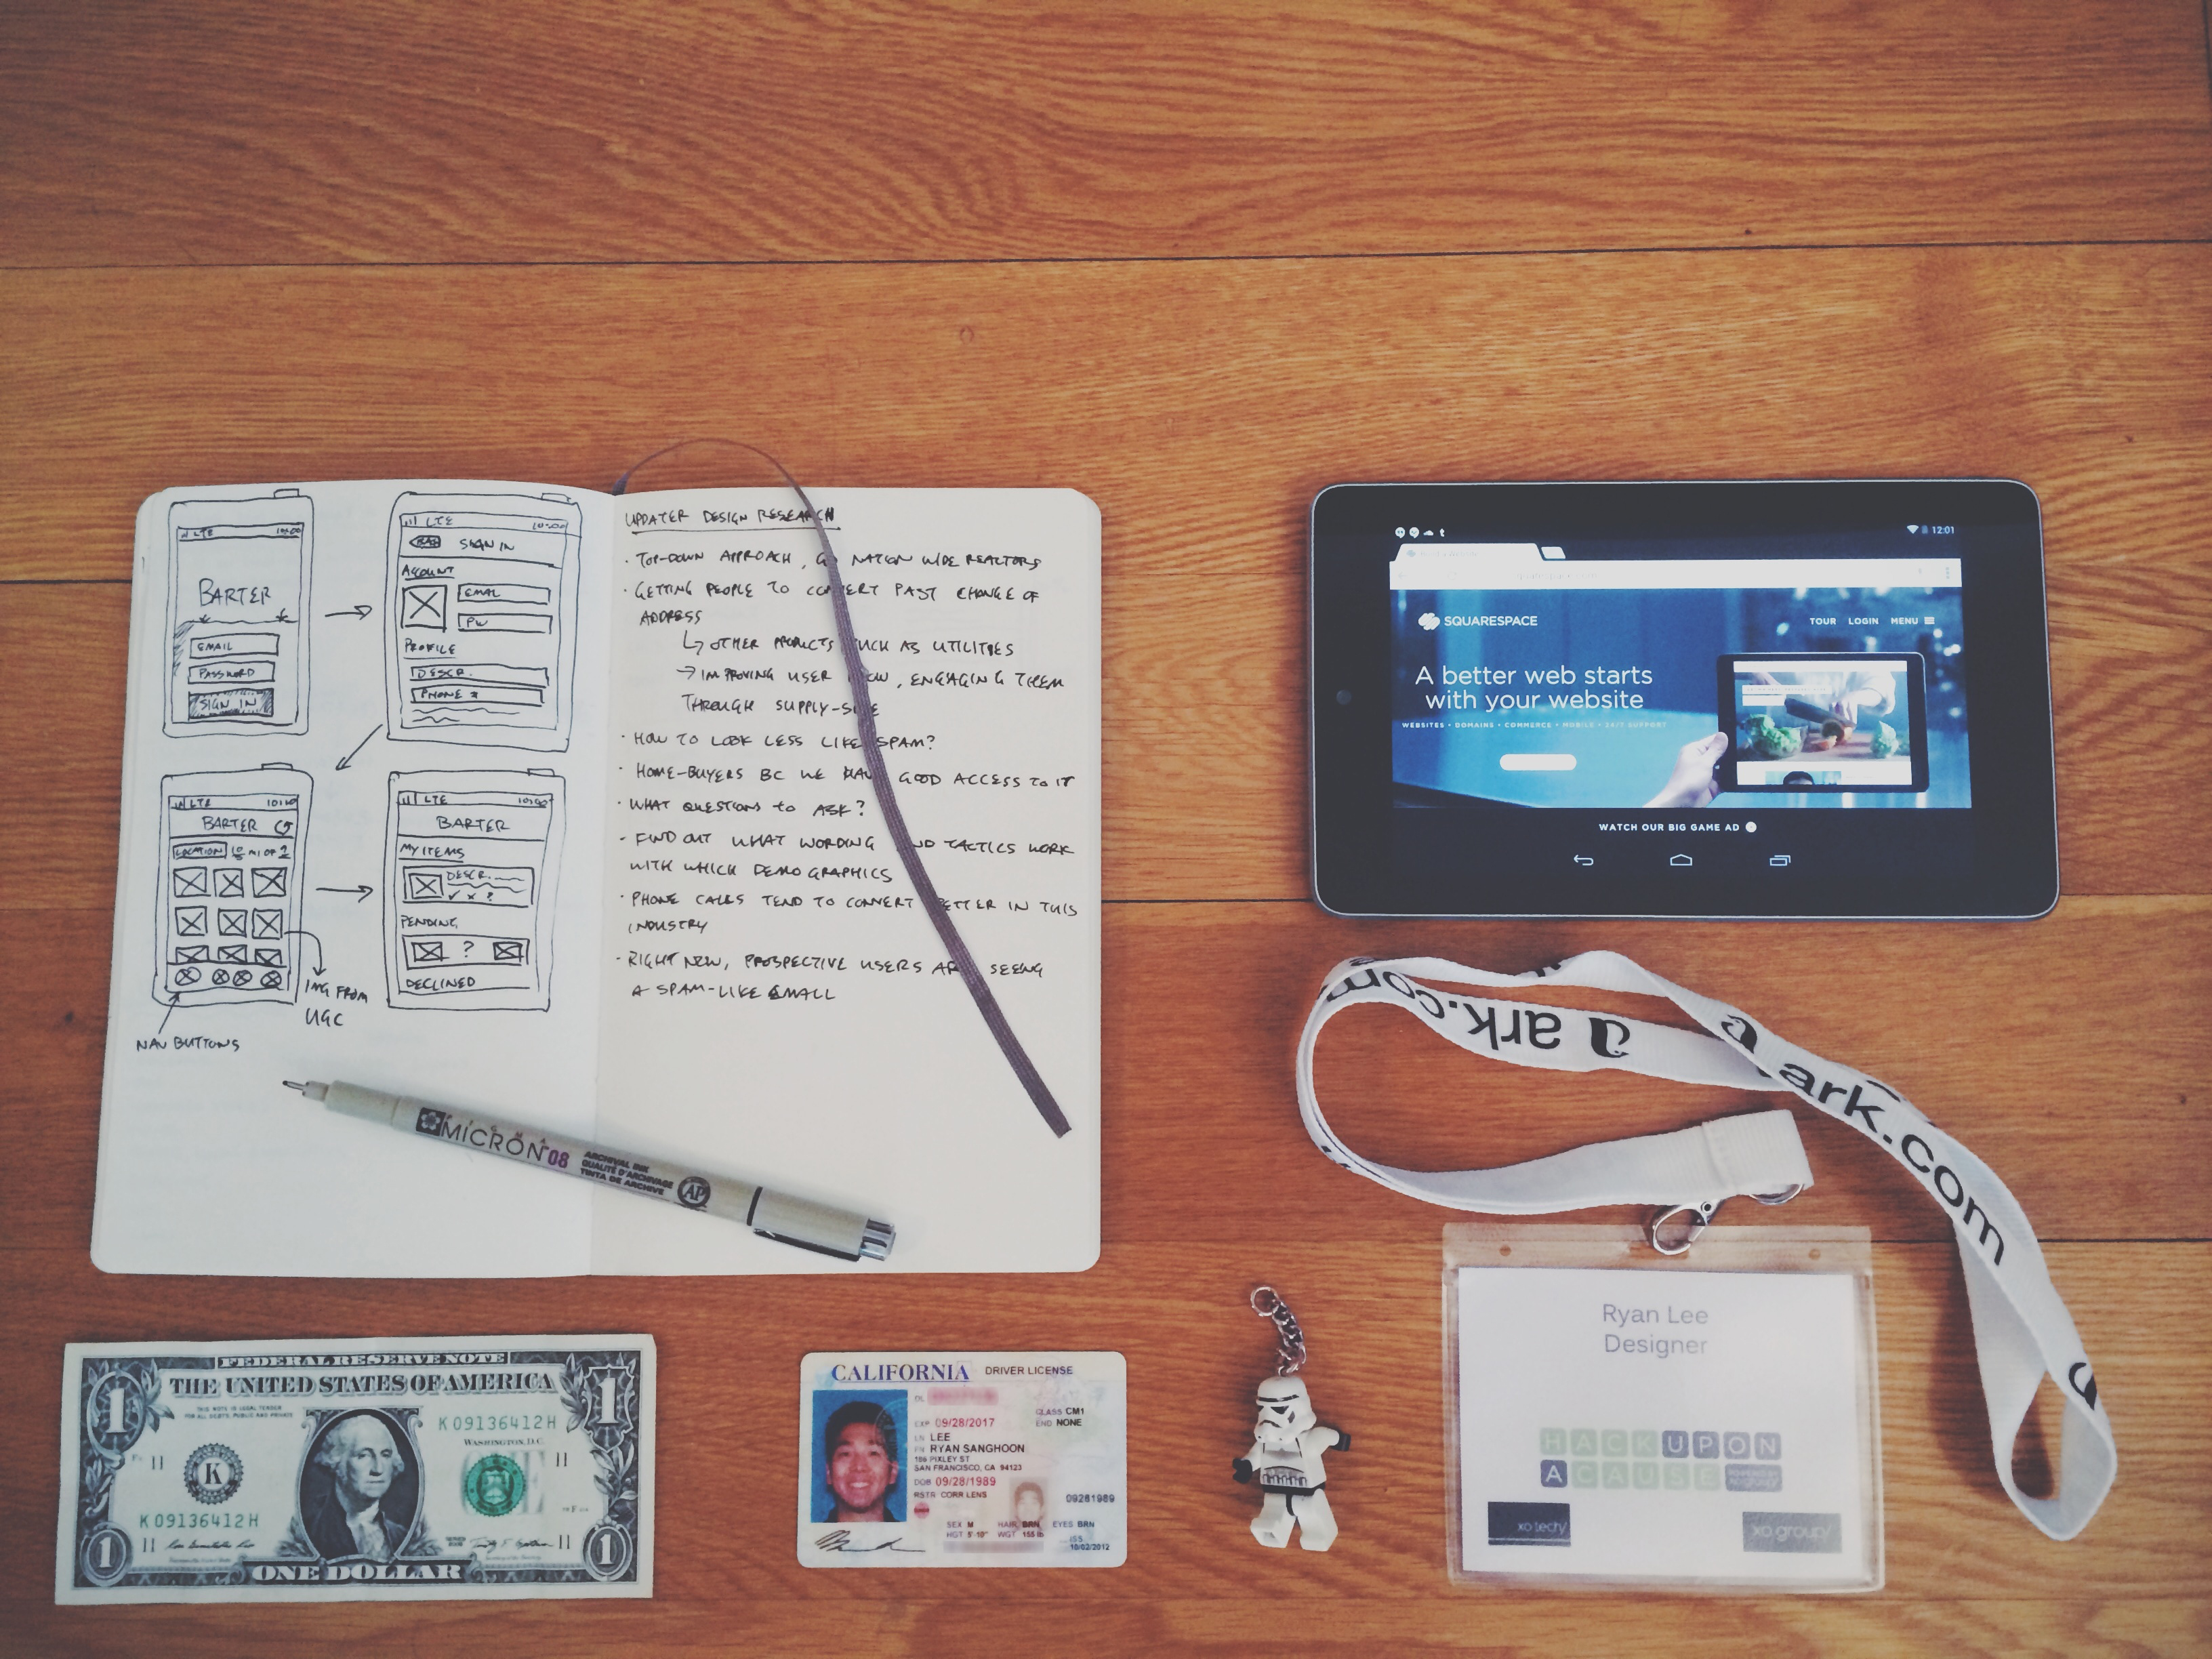 LTE 10:00
BARTER
EMAIL
PASSWORD
SIGN IN
LTE
SIGN IN
ACCOUNT
EMAIL
PW
PROFILE
DESCR.
PHONE #
LTE
BARTER
LOCATION
LTE
BARTER
MY ITEMS
DESCR.
✓ x ?
PENDING
?
DECLINED
IMG FROM
UGC
NAV BUTTONS
UPDATER DESIGN RESEARCH
· TOP-DOWN APPROACH, NATION WIDE REALTORS
· GETTING PEOPLE TO CONVERT PAST CHANGE OF
ADDRESS
↳ OTHER PRODUCTS SUCH AS UTILITIES
→ IMPROVING USER FLOW, ENGAGING THEM
THROUGH SUPPLY-SIDE
· HOW TO LOOK LESS LIKE SPAM?
· HOME-BUYERS BC WE HAVE GOOD ACCESS TO IT
· WHAT QUESTIONS TO ASK?
· FIND OUT WHAT WORDING AND TACTICS WORK
WITH WHICH DEMOGRAPHICS
· PHONE CALLS TEND TO CONVERT BETTER IN THIS
INDUSTRY
· RIGHT NOW, PROSPECTIVE USERS ARE SEEING
A SPAM-LIKE EMAIL
MICRON 08
ARCHIVAL INK
QUALITÉ D'ARCHIVAGE
TINTA DE ARCHIVE
AP
12:01
SQUARESPACE
TOUR LOGIN MENU
A better web starts
with your website
WEBSITES • DOMAINS • COMMERCE • MOBILE • 24/7 SUPPORT
WATCH OUR BIG GAME AD
ark.com
ark.com
Ryan Lee
Designer
HACKUPON
ACAUSE
xo tech/
xo group/
FEDERAL RESERVE NOTE
THE UNITED STATES OF AMERICA
THIS NOTE IS LEGAL TENDER
FOR ALL DEBTS, PUBLIC AND PRIVATE
K 09136412 H
WASHINGTON, D.C.
K
11
11
K 09136412 H
11
11
1
1
1
1
ONE DOLLAR
CALIFORNIA DRIVER LICENSE
DL
CLASS CM1
EXP 09/28/2017 END NONE
LN LEE
FN RYAN SANGHOON
186 PIXLEY ST
SAN FRANCISCO, CA 94123
DOB 09/28/1989
RSTR CORR LENS
09281989
SEX M HAIR BRN EYES BRN
HGT 5'-10" WGT 155 lb
ISS
10/02/2012